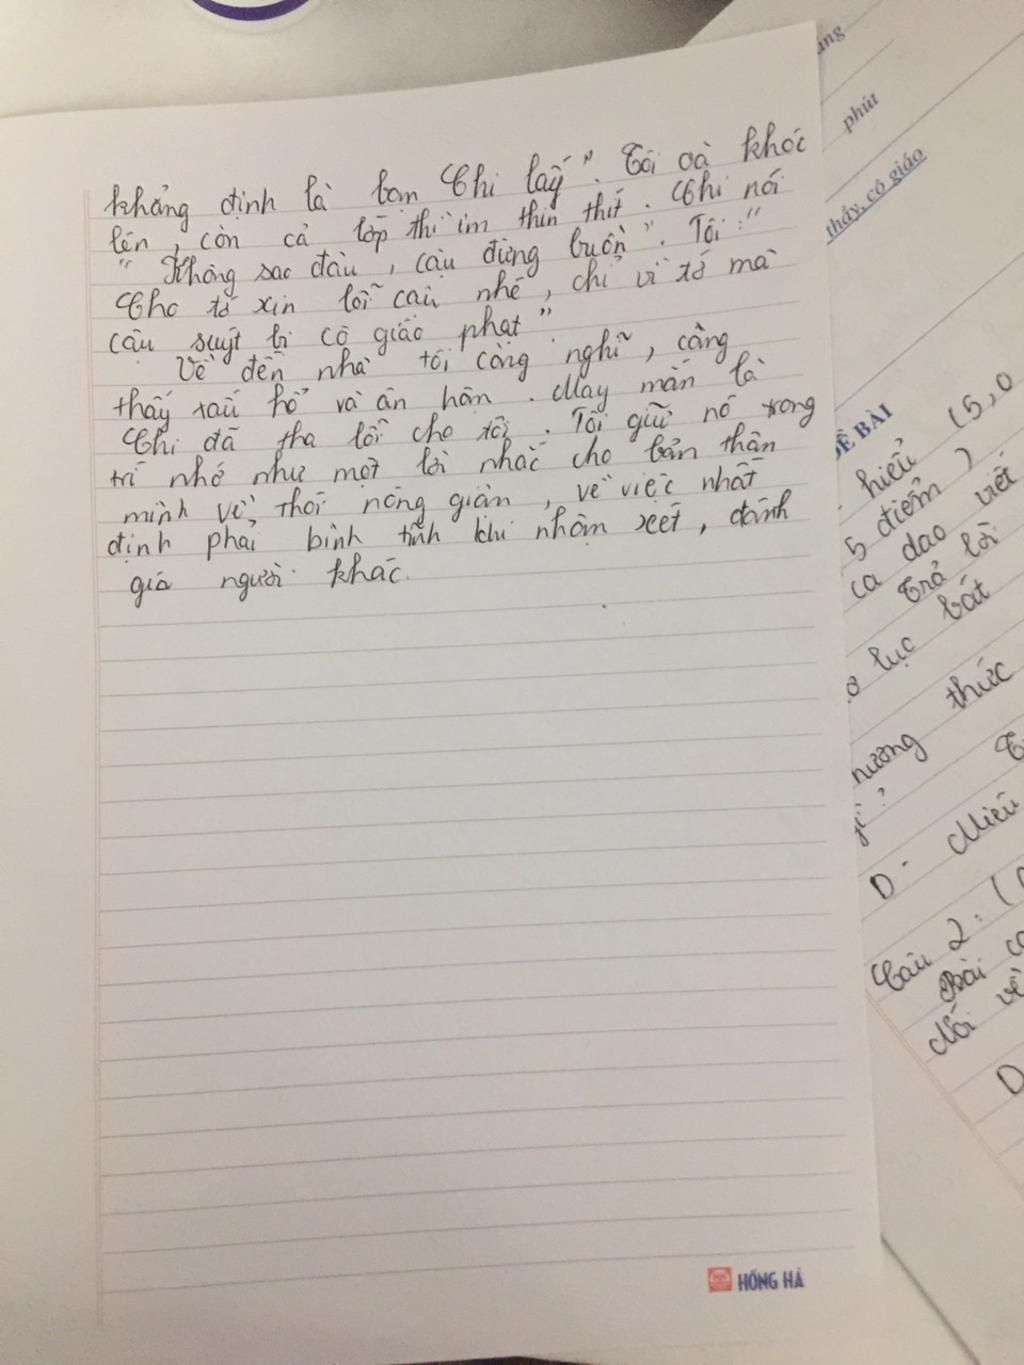 khẳng định là bạn Chi lấy". Tôi oà khóc
lên, còn cả lớp thì im thin thít. Chi nói
" Không sao đâu, cậu đừng buồn". Tôi: "
Cho tớ xin lỗi cậu nhé, chỉ vì tớ mà
cậu suýt bị cô giáo phạt"
Về đến nhà tôi càng nghĩ, càng
thấy xấu hổ và ân hận. May mắn là
Chi đã tha lỗi cho tôi. Tôi giữ nó trong
trí nhớ như một lời nhắc cho bản thân
mình về thói nóng giận, về việc nhất
định phải bình tĩnh khi nhận xét, đánh
giá người khác.
HỒNG HÀ
ang
phút
thầy, cô giáo
ĐỀ BÀI
hiểu (5,0
5 điểm)
ca dao viết
Trả lời
lục bát
hương thức
gì?
D. Miêu
Câu 2: (
Bài ca
đối về
D